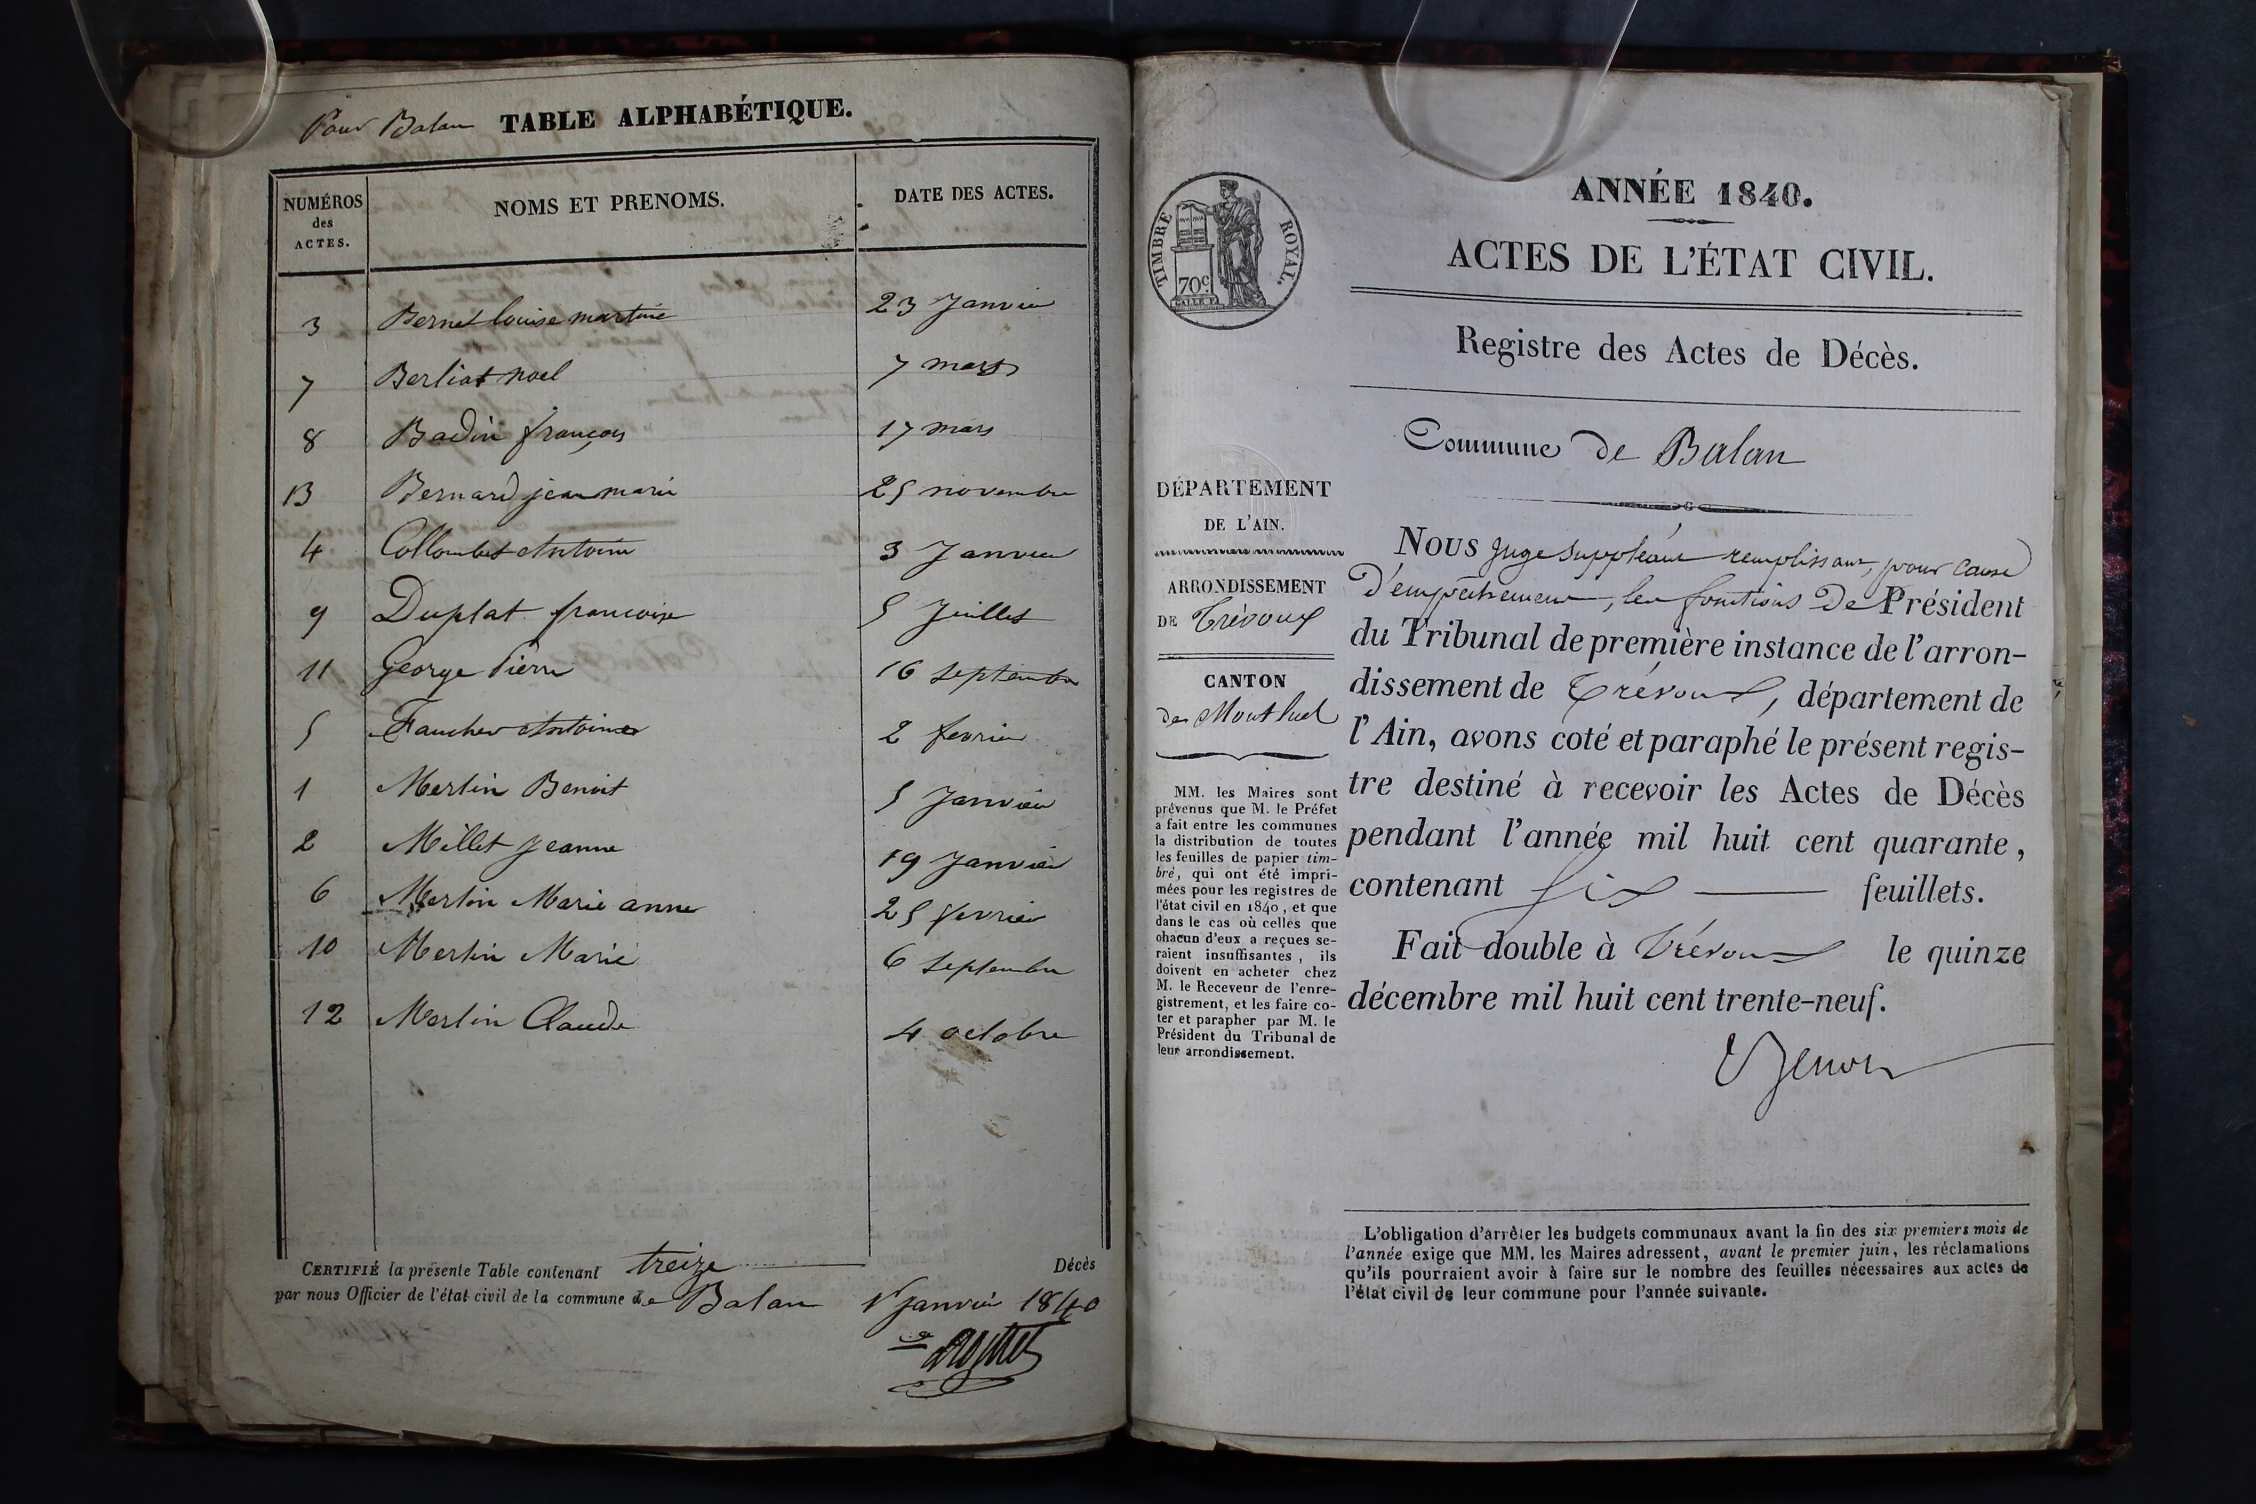 Pour Balan TABLE ALPHABÉTIQUE.
NUMÉROS
des
ACTES.
NOMS ET PRENOMS.
DATE DES ACTES.
3 Bernet louise martine 23 Janvier
7 Berliat noel 7 mars
8 Badin françois 17 mars
13 Bernard jean marie 25 novembre
4 Collombet Antoine 3 Janvier
9 Duplat francoise 5 Juillet
11 George Pierre 16 septembre
5 Faucher Antoine 2 fevrier
1 Merlin Benoit 5 Janvier
2 Millet Jeanne 19 Janvier
6 Merlin Marie anne 25 fevrier
10 Merlin Marie 6 septembre
12 Merlin Claude 4 octobre
CERTIFIÉ la présente Table contenant treize Décès
par nous Officier de l'état civil de la commune de Balan 1er janvier 1840
TIMBRE ROYAL.
70c.
ANNÉE 1840.
ACTES DE L'ÉTAT CIVIL.
Registre des Actes de Décès.
Commune de Balan
DÉPARTEMENT
DE L'AIN.
ARRONDISSEMENT
DE Trévoux
CANTON
de Montluel
MM. les Maires sont
prévenus que M. le Préfet
a fait entre les communes
la distribution de toutes
les feuilles de papier tim-
bré, qui ont été impri-
mées pour les registres de
l'état civil en 1840, et que
dans le cas où celles que
chacun d'eux a reçues se-
raient insuffisantes, ils
doivent en acheter chez
M. le Receveur de l'enre-
gistrement, et les faire co-
ter et parapher par M. le
Président du Tribunal de
leur arrondissement.
NOUS Juge Suppléant remplissant, pour cause
D'empêchement, les fonctions De Président
du Tribunal de première instance de l'arron-
dissement de Trévoux, département de
l'Ain, avons coté et paraphé le présent regis-
tre destiné à recevoir les Actes de Décès
pendant l'année mil huit cent quarante,
contenant six feuillets.
Fait double à Trévoux le quinze
décembre mil huit cent trente-neuf.
L'obligation d'arrêter les budgets communaux avant la fin des six premiers mois de
l'année exige que MM. les Maires adressent, avant le premier juin, les réclamations
qu'ils pourraient avoir à faire sur le nombre des feuilles nécessaires aux actes de
l'état civil de leur commune pour l'année suivante.